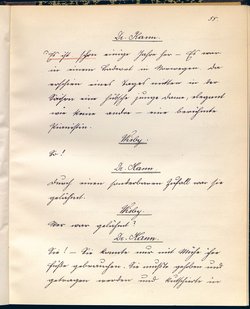 55.
Dr. Kann.
Es ist schon einige Jahre her – Es war
in einem Badeort in Norwegen. Da
erschien eines Tages mitten in der
Saison eine hübsche junge Dame, elegant
wie keine andre – eine berühmte
Pianistin.
Wesby.
So!
Dr. Kann.
Durch einen sonderbaren Zufall war sie
gelähmt.
Wesby.
Wer war gelähmt?
Dr. Kann.
Sie! – Sie konnte nur mit Mühe ihre
Füße gebrauchen. Sie mußte gehoben und
getragen werden und kutschierte in